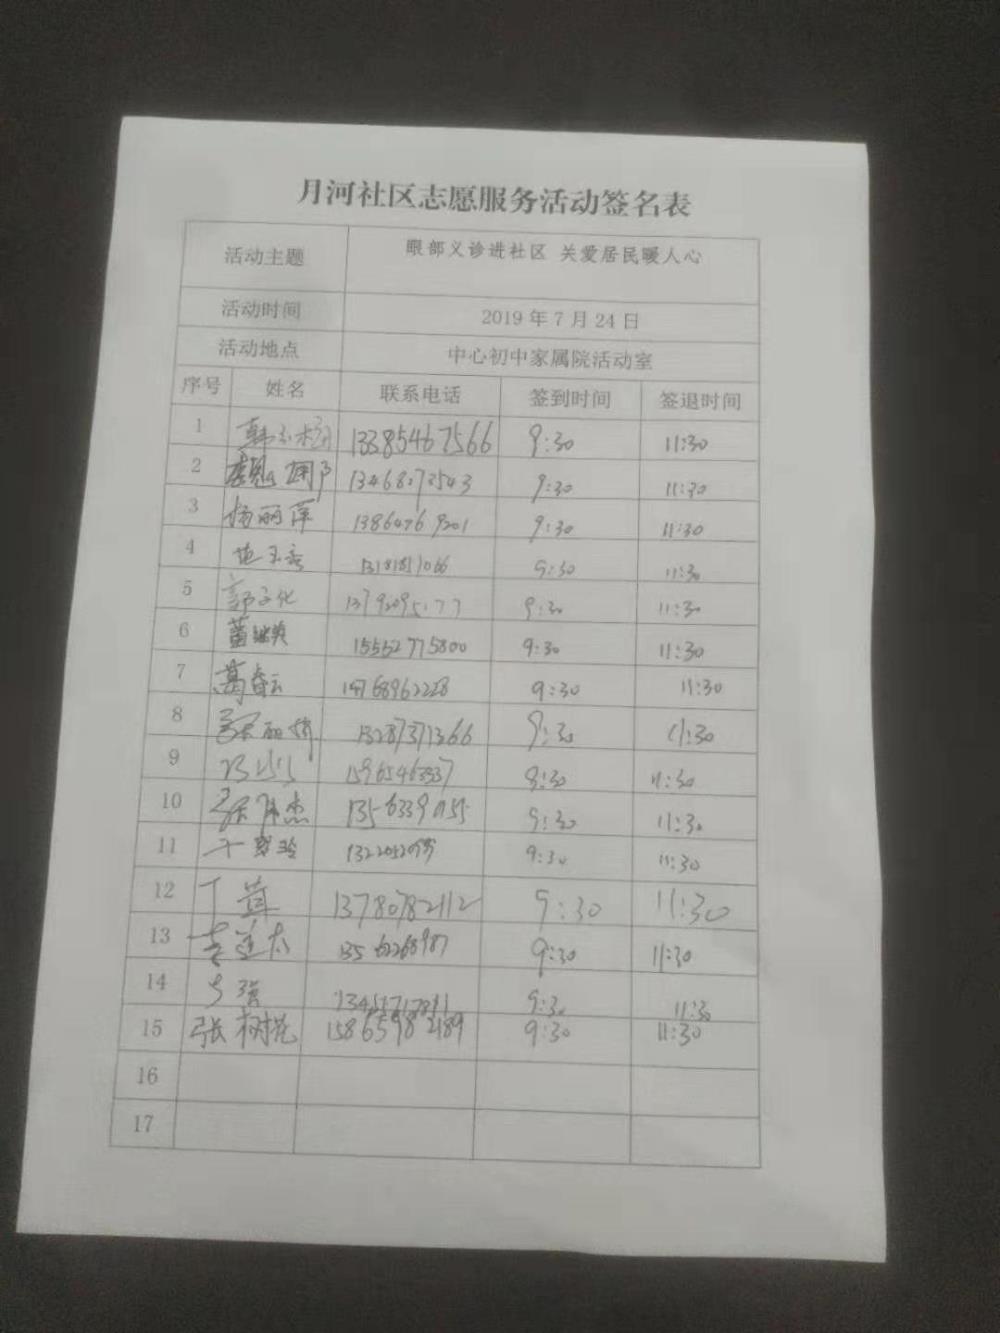 月河社区志愿服务活动签名表
活动主题 眼部义诊进社区 关爱居民暖人心
活动时间 2019年7月24日
活动地点 中心初中家属院活动室
序号 姓名 联系电话 签到时间 签退时间
1 13385467566 9:30 11:30
2 13468272543 9:30 11:30
3 杨丽萍 13864769201 9:30 11:30
4 13181817066 9:30 11:30
5 郭子化 9:30 11:30
6 董继英 15552775800 9:30 11:30
7 葛春云 9:30 11:30
8 13287371366 9:30 11:30
9 9:30 11:30
10 9:30 11:30
11 9:30 11:30
12 丁茸 13780782112 9:30 11:30
13 13562268987 9:30 11:30
14 9:30 11:30
15 张树花 15865982189 9:30 11:30
16
17